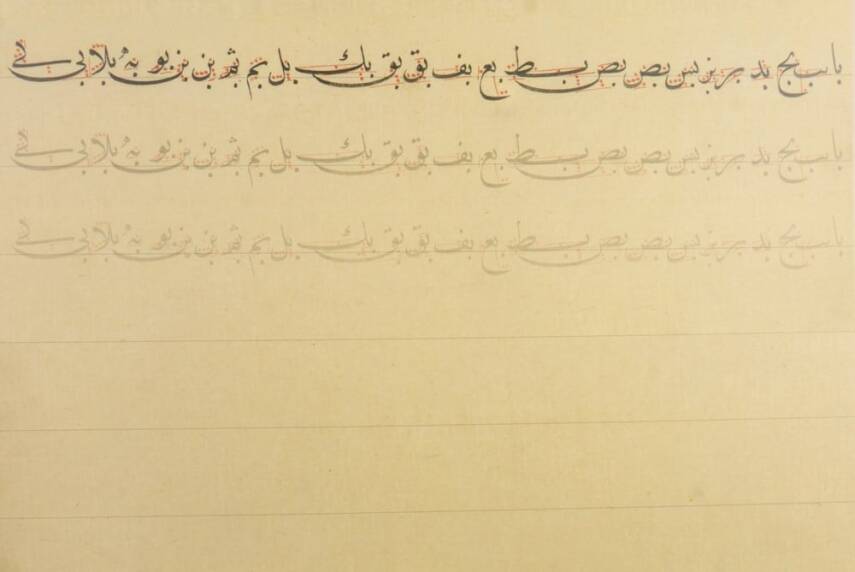 با بب بج بد بر بز بس بص بص بط بع بف بق بق بك بل بم بم بن بن بو به بلا بى
با بب بج بد بر بز بس بص بص بط بع بف بق بق بك بل بم بم بن بن بو به بلا بى
با بب بج بد بر بز بس بص بص بط بع بف بق بق بك بل بم بم بن بن بو به بلا بى